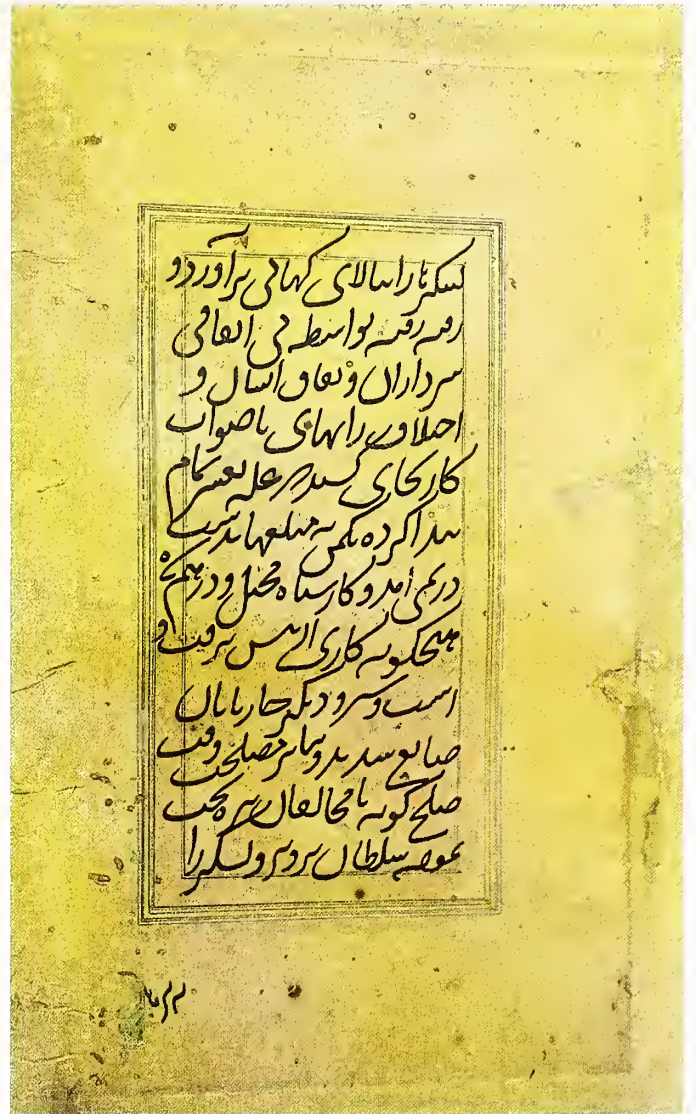 لشکرها را ببالای گهاتی برآورد و
رفته رفته بواسطه بی اتفاقی
سرداران و نفاق ایشان و
اختلاف رایهای ناصواب
کار بجای کشید که غله بعسر تمام
پیدا کرده یکمن به مبلغها بدست
در نمی آمد و کار سپاه مختل و درهم شده
هیچگونه کاری از پیش نرفت و
اسب و شتر و دیگر چارپایان
ضایع شدند و بنابر مصلحت وقت
صلح گونه با مخالفان تیره بخت
نموده سلطان پرویز و لشکر را